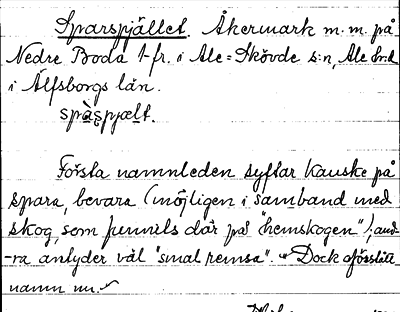 Sparspjället. Åkermark m.m. på
Nedre Boda 1 fr. i Ale-Skövde s:n, Ale hd
i Älfsborgs län.
spàspjælt.
Första namnleden syftar kanske på
spara, bevara (möjligen i samband med
skog, som funnits där på "hemskogen"), and-
-ra antyder väl "smal remsa". Dock
namn nu.